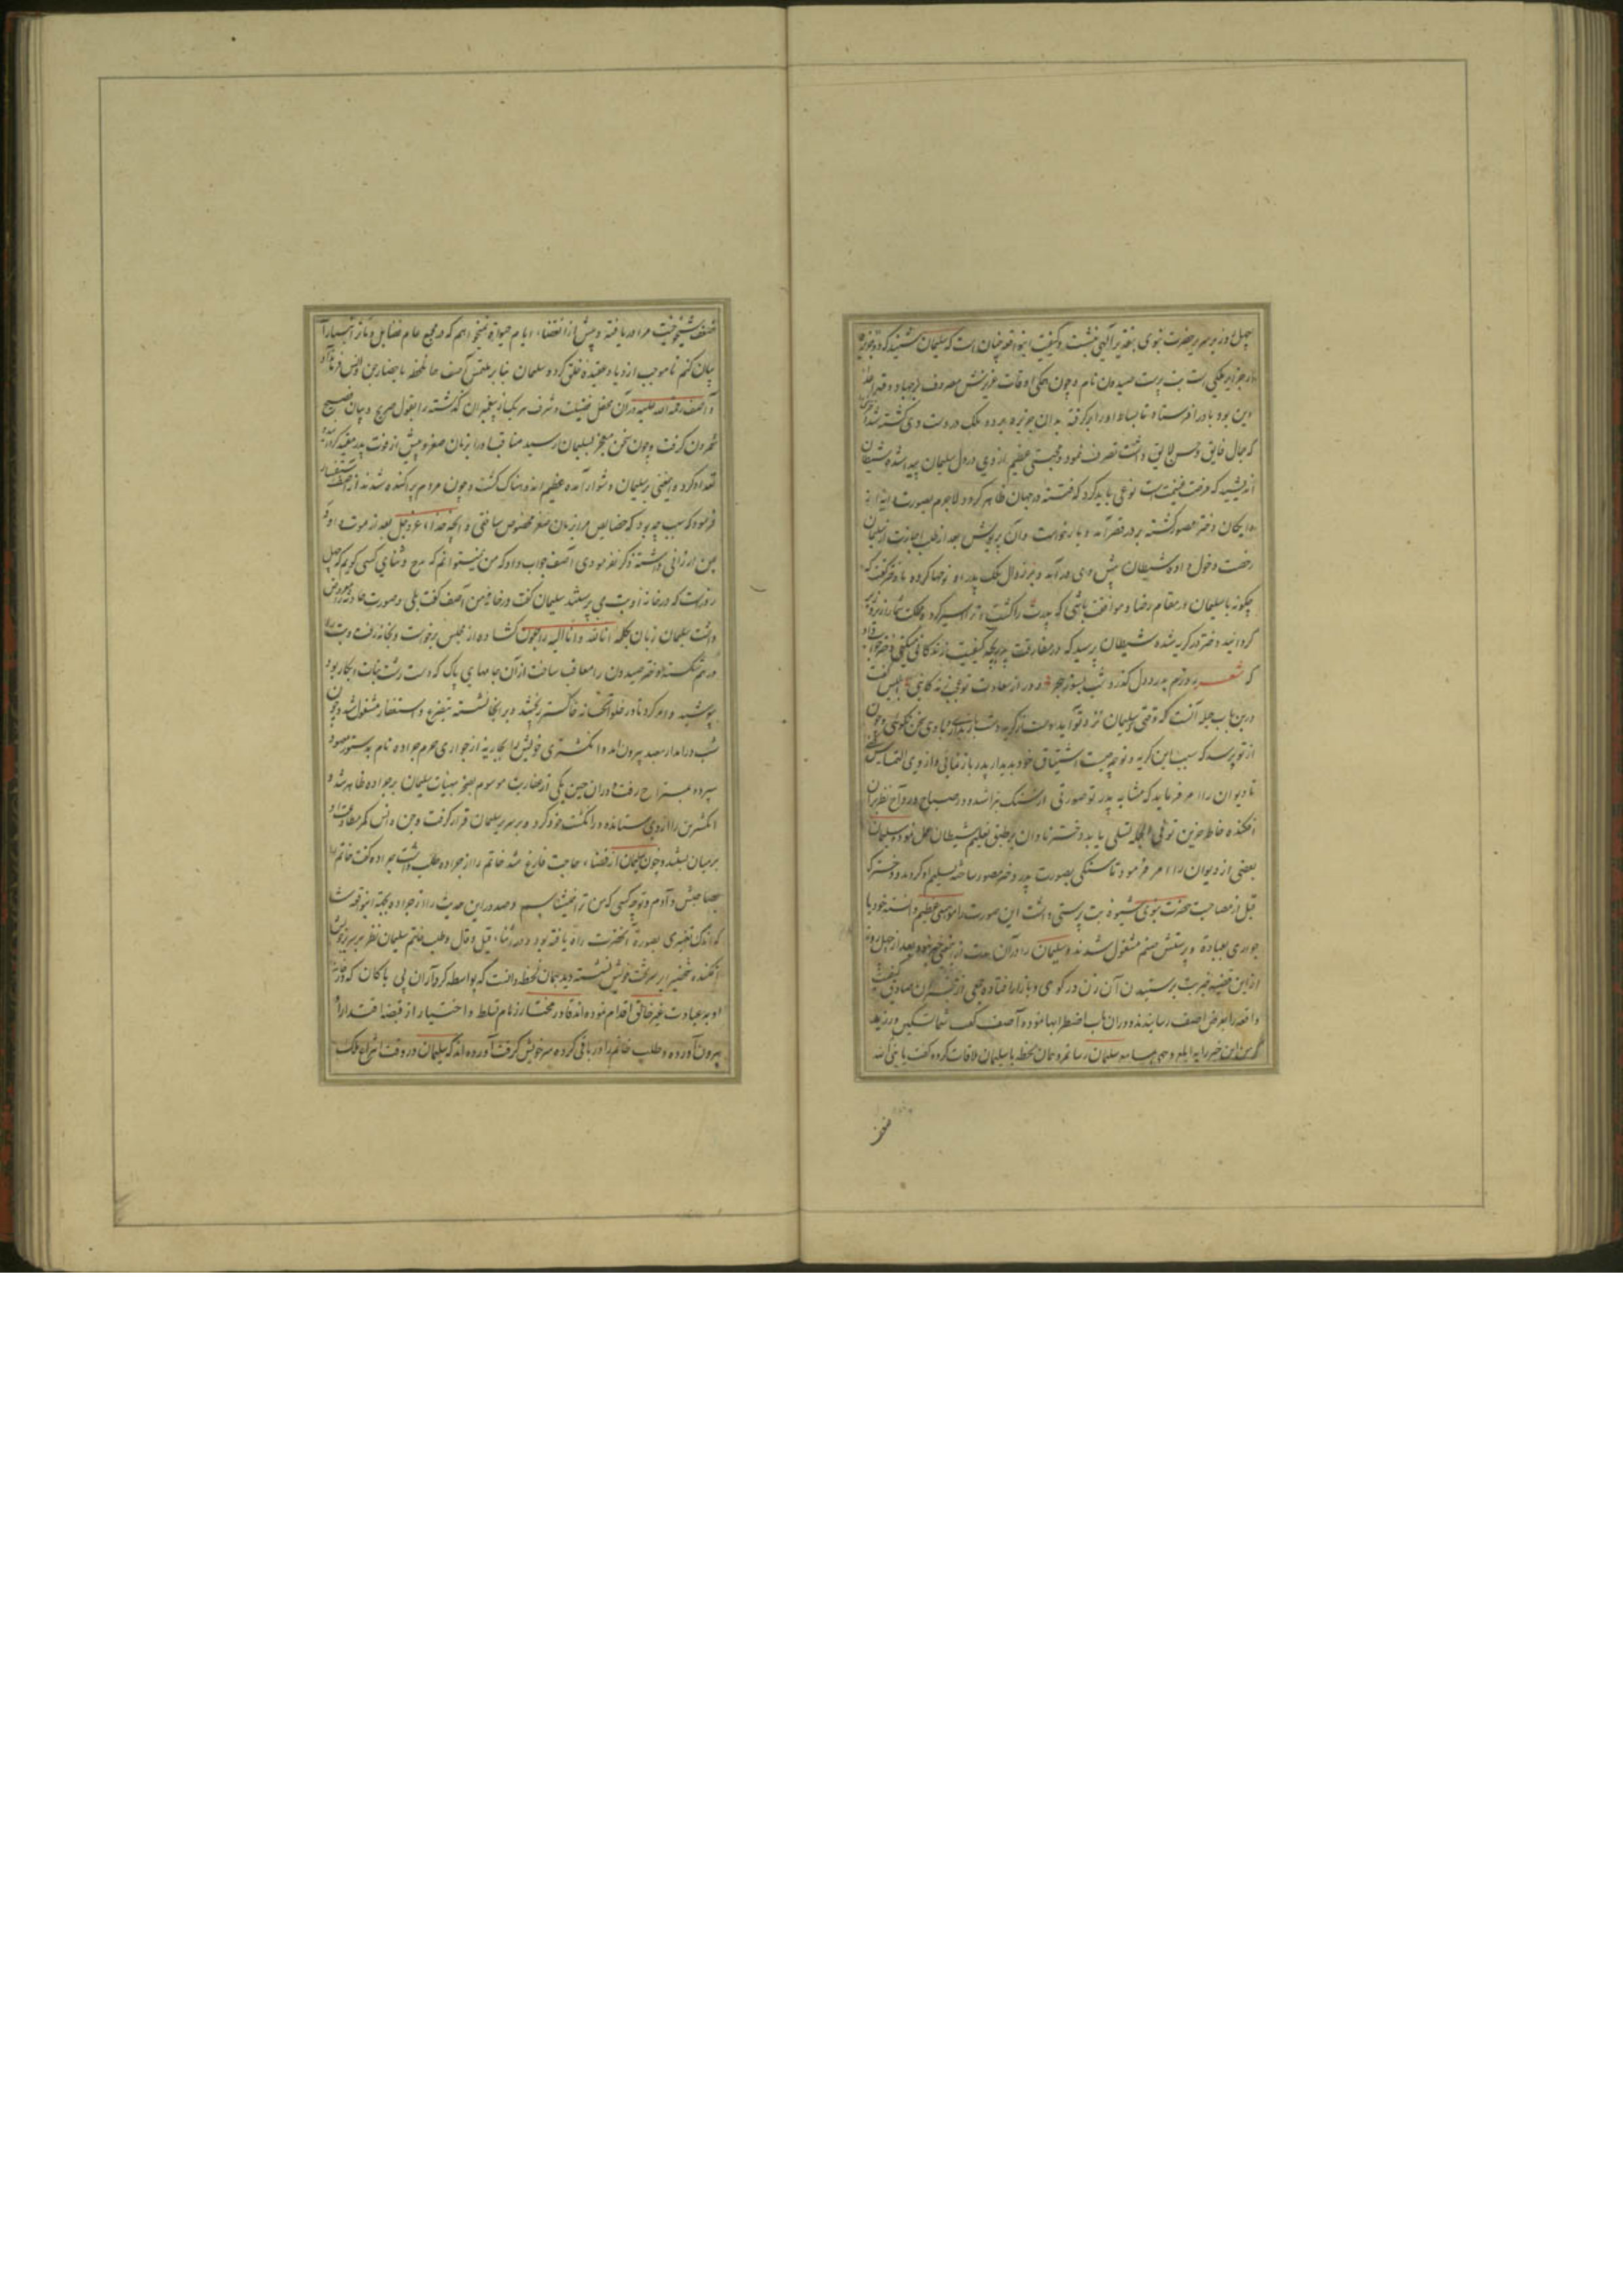 چهل روز بر سریر حضرت نبوی بتقدیر الهی نشست و کیفیت این واقعه چنان است که سلیمان شنید که در جزیره
از جزایر ملکی است بت پرست صیدون نام و چون همگی اوقات عزیزش مصروف بر جهاد و قهر اعداء
دین بود باد را فرستاد تا بساط او را برگرفته بدان جزیره برد و ملک در دست وی کشته شد
که جمال فایق و حسن لایق داشت تصرف نمود و محبتی عظیم از وی در دل سلیمان پیدا شد و شیطان
اندیشید که فرصت غنیمت است نوعی باید کرد که فتنه در جهان ظاهر گردد لاجرم بصورت دایه از
دایکان دختر مصور گشته بر در قصر آمد و بار خواست و آن پریوش بعد از طلب اجازت از سلیمان
رخصت دخول داد و شیطان پیش وی در آمد و بر زوال ملک پدر او نوحها کرده با دختر گفت که
چگونه با سلیمان در مقام رضا و موافقت باشی که پدرت را کشت و ترا اسیر کرد و ملکت شما را زیر و زبر
گردانید دختر در گریه شد و شیطان پرسید که در مفارقت پدر بچه کیفیت زندگانی میکنی دختر جواب داد
که شعر روزم بدرد دل گذرد و شب بسوز هجر دور از سعادت تو عجب زندگانی ابلیس گفت
درین باب حیله آنست که وقتی سلیمان نزد تو آید دست از گریه و شیون باز نداری و با وی سخن نگویی و چون
از تو پرسد که سبب این گریه و نوحه چیست اشتیاق خود بدیدار پدر باز نمائی و از وی التماس کنی
تا دیوان را امر فرماید که مشابه پدر تو صورتی از سنگ بتراشد و در صباح و رواح نظر بران
افکنده خاطر حزین تو فی الجمله تسلی یابد دختر نادان بر طبق تعلیم شیطان عمل نمود و سلیمان
بعضی از دیوان را امر فرمود تا سنگی بصورت پدر دختر مصور ساخته تسلیم او کردند و دختر که
قبل از مصاحبت حضرت نبوی شیوه بت پرستی داشت این صورت را موهبتی عظیم دانسته خود با
جواری بعبادت و پرستش صنم مشغول شدند و سلیمان را در آن مدت از این معنی خبر نبود و بعد از چهل روز
از این قضیه خبر بت پرستیدن آن زن در کوی و بازارها افتاده جمعی از مخبران صادق کیفیت
واقعه را بعرض آصف رسانیدند و در آن باب اضطرابها نموده آصف گفت شما تسکین ورزید
که من این خبر را بسلیمان رسانم و همان لحظه با سلیمان ملاقات کرده گفت یا نبی الله
ضعف
ضعف شیخوخیت مرا دریافته و پیش از انقضاء ایام حیوة میخواهم که در مجمع عام فضایل و مآثر انبیا را
بیان کنم تا موجب ازدیاد عقیده خلق گردد سلیمان بنا بر ملتمس آصف همان لحظه باحضار جن و انس فرمان داد
و آصف رحمة الله علیه در آن محفل فضیلت و شرف هر یک از پیغمبران گذشته را بقول صریح و بیان فصیح
شمردن گرفت و چون سخن منجر بسلیمان رسید مناقب او را بزمان صغر و پیش از فوت پدر مقید گردانیده
تعداد کرد و این معنی بر سلیمان دشوار آمده عظیم اندوهناک گشت و چون مردم پراکنده شدند از آصف استفسار
فرمود که سبب چه بود که خصایص مرا بزمان صغر مخصوص ساختی و آنچه خدای عز و جل بعد از موت داود
بمن ارزانی داشته ذکر نفرمودی آصف جواب داد که من نمیتوانم که مدح و ثنای کسی گویم که چهل
روز است که در خانه او بت می پرستند سلیمان گفت در خانه من آصف گفت بلی و صورت حادثه معروض
داشت سلیمان زبان بکلمه انا لله و انا الیه راجعون گشاده از مجلس برخواست و بخانه رفت و بت را
درهم شکسته دختر صیدون را معاقب ساخت از آن جامهای پاک که دست رشت بنات ابکار بود
پوشید و امر کرد تا در خلوتخانه خاکستر ریختند و بر آنجا نشسته بتضرع و استغفار مشغول شد و چون
شب در آمد از معبد بیرون آمد و انگشتری خویش را بجاریه از جواری حرم جراده نام بدستور معهود
سپرده بمستراح رفت و در آن حین یکی از عفاریت موسوم بصخر بهیات سلیمان بر جراده ظاهر شد و
انگشترین را از وی ستانده در انگشت خود کرد و بر سریر سلیمان قرار گرفت و جن و انس کمر مطاوعت او
بر میان بستند و چون سلیمان از قضاء حاجت فارغ شد خاتم را از جراده طلب داشت جراده گفت خاتم را
بصاحبش دادم و تو چه کسی که من ترا نمیشناسم و صدور این حدیث را از جراده بجهة این واقع شد
که اندک تغییری بصورت آنحضرت راه یافته بود و در اثناء قیل و قال و طلب خاتم سلیمان نظر بر سریر خویش
افکنده شخصی را بر تخت خویش نشسته دید همان لحظه دانست که بواسطه کردار آن بی باکان که در خانه
او بعبادت غیر خالق اقدام نموده اند قادر مختار زمام تسلط و اختیار از قبضه اقتدار او
بیرون آورده و طلب خاتم را در باقی کرده سر خویش گرفت آورده اند که سلیمان در وقت انتزاع ملک